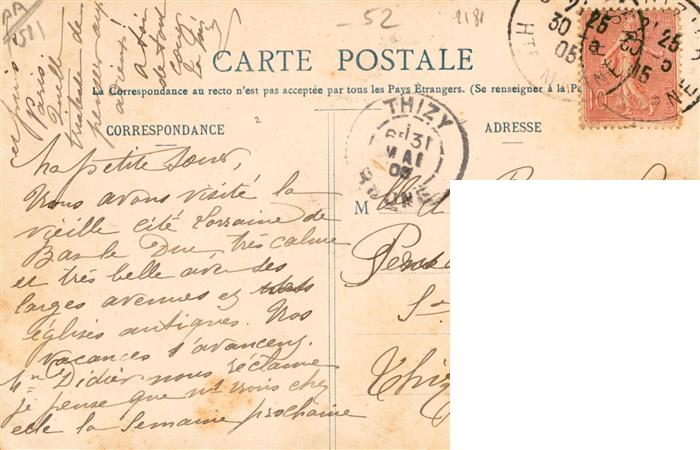 52
2181
CARTE POSTALE
La Correspondance au recto n'est pas acceptée par tous les Pays Étrangers. (Se renseigner à la Po
CORRESPONDANCE
ADRESSE
THIZY
MAI
RHONE
30
25
05
10
M
Thiz
Ma petite Soeur,
Nous avons visité la
vieille cité Lorraine de
Bar le Duc, très calme
et très belle avec ses
larges avenues et
églises antiques. Nos
vacances s'avancent.
Mme Didier nous réclame
je pense que ns irons chez
elle la Semaine prochaine
et puis
Paris.
Quelle
tristesse de
penser aux
adieux!
a toi
de tout
coeur